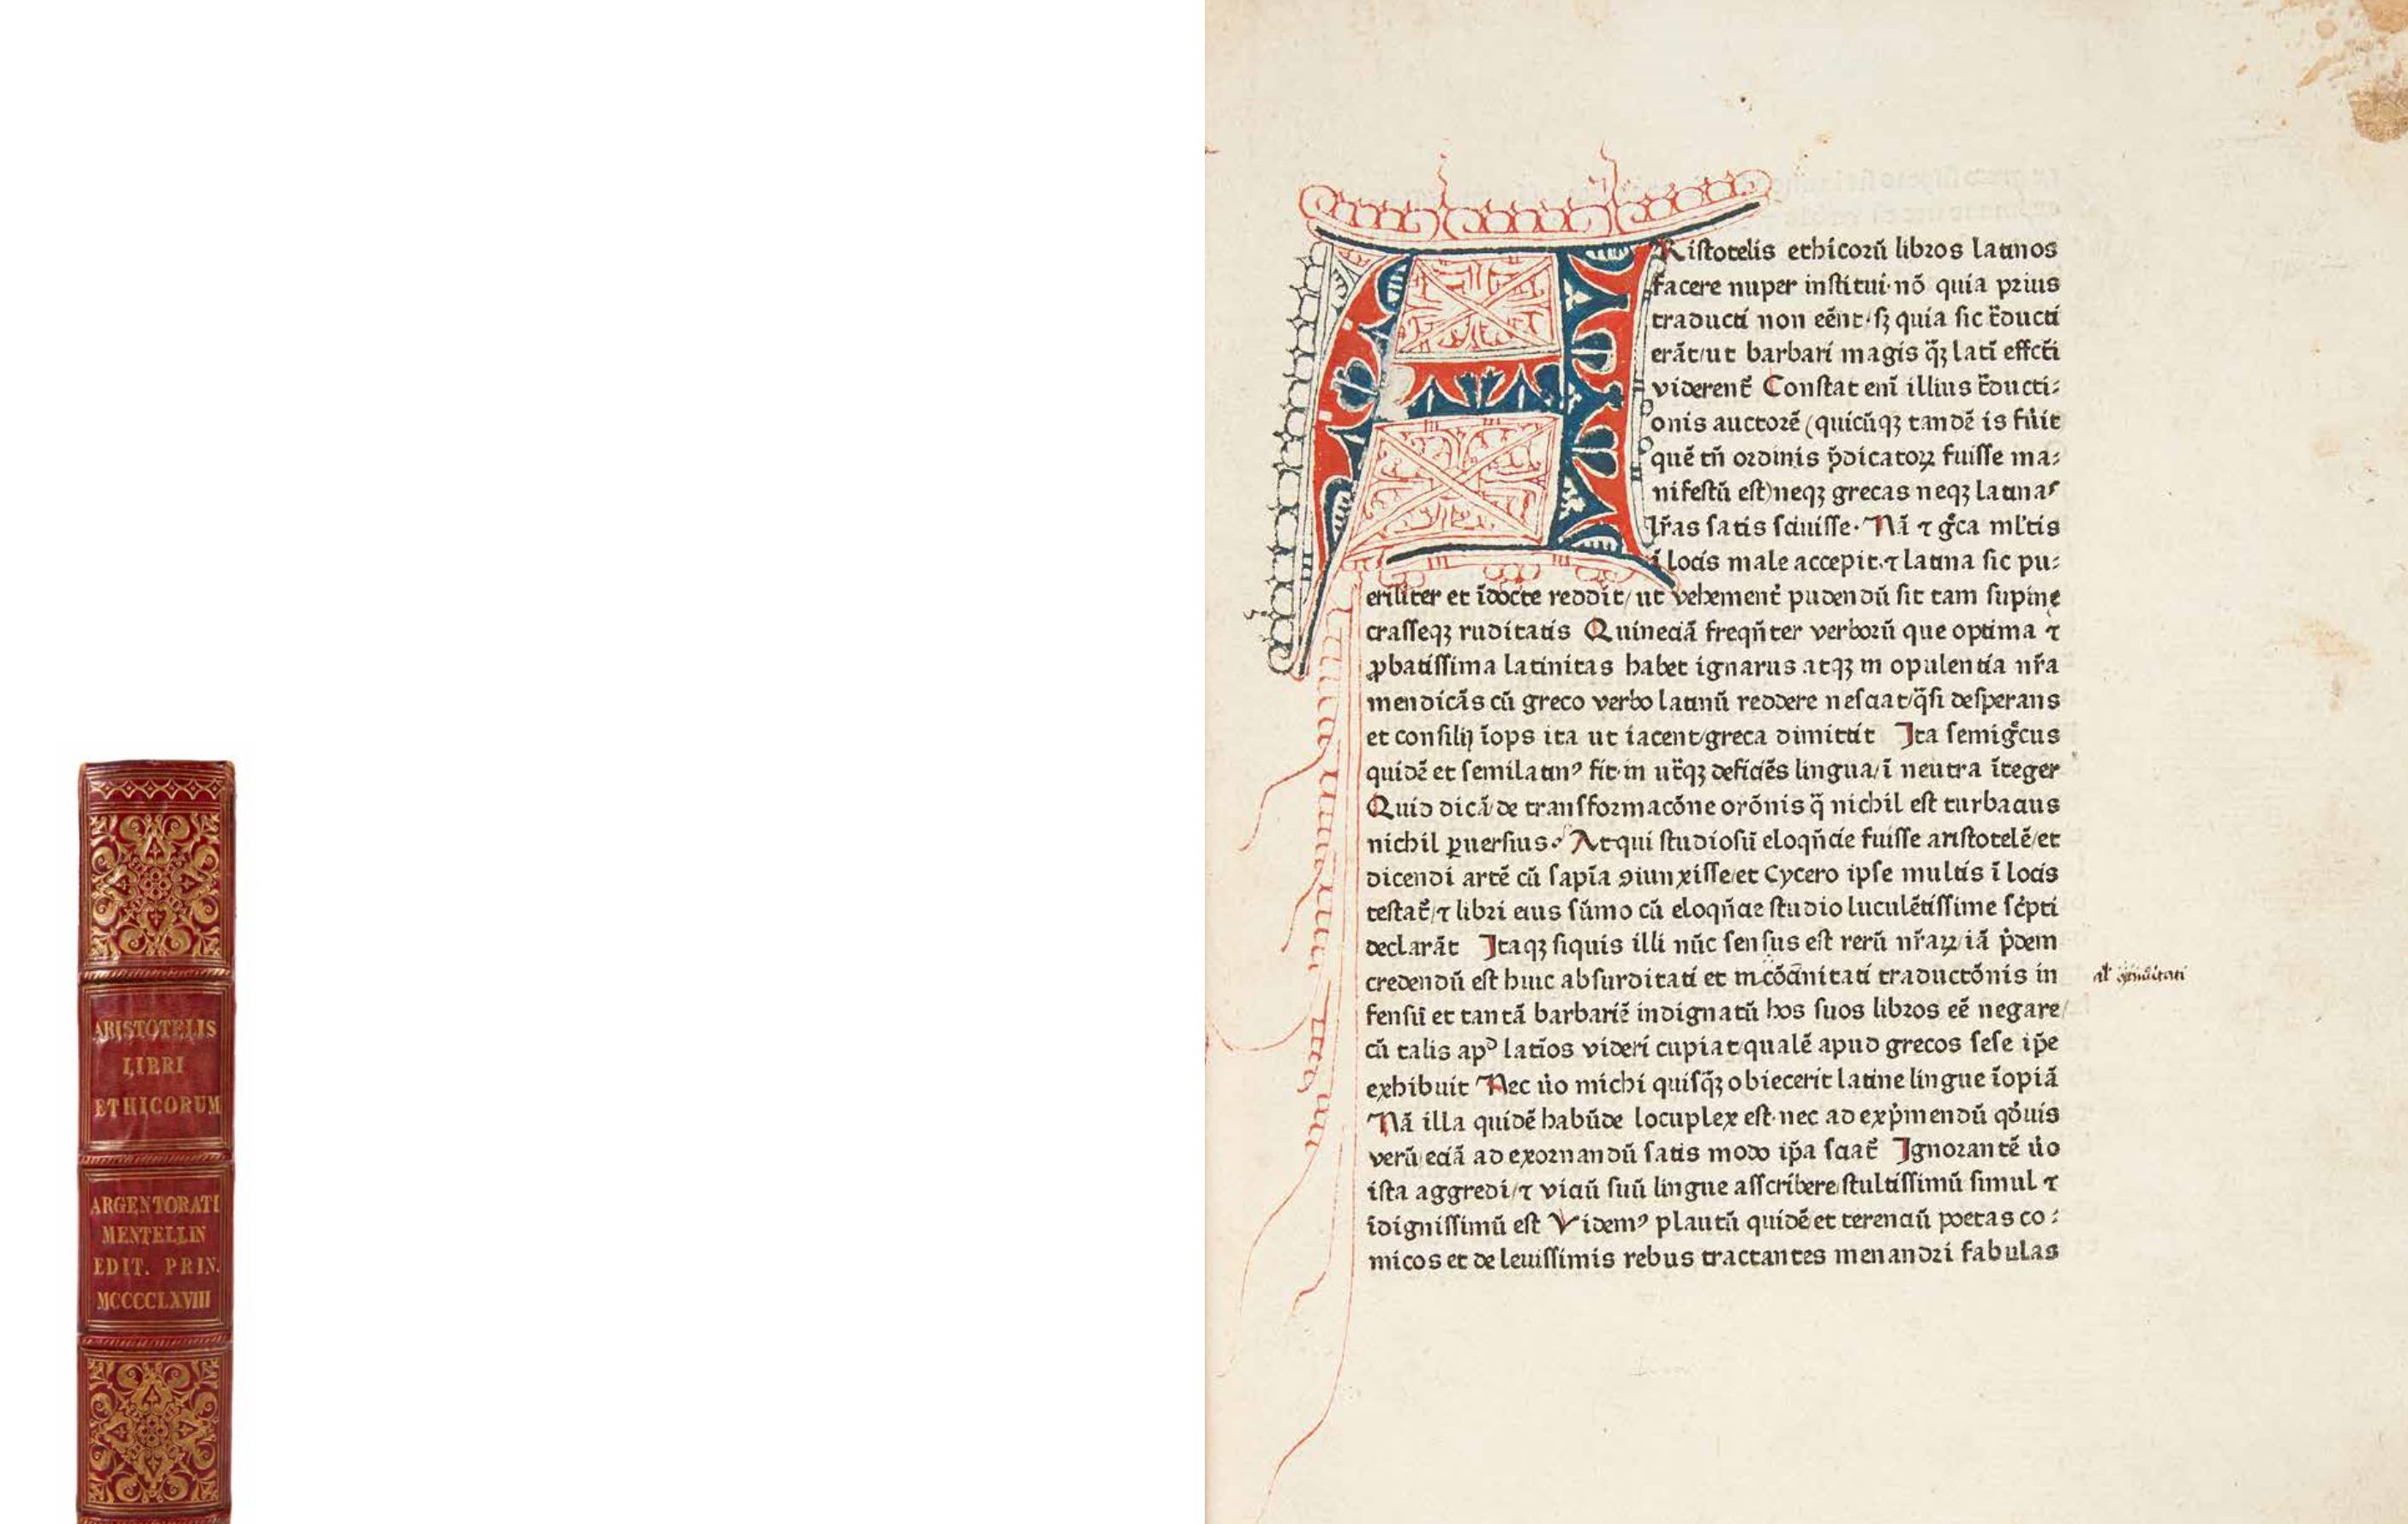 ARISTOTELIS
LIBRI
ETHICORUM
ARGENTORATI
MENTELLIN
EDIT. PRIN.
MCCCCLXVIII
ARistotelis ethicorũ libros latinos
facere nuper institui·nõ quia prius
traducti non eẽnt·sꝫ quia sic t̃ducti
erãt/ut barbari magis q̃ꝫ lati effcti
viderent̃ Constat enĩ illius t̃ducti⸗
onis auctorẽ (quicũqꝫ tandẽ is fuit
quẽ tñ ordinis p̃dicatoꝝ fuisse ma⸗
nifestũ est)neqꝫ grecas neqꝫ latinas
lr̃as satis scivisse· Nã ⁊ gͨca ml̃tis
ĩ locis male accepit·⁊ latina sic pu⸗
eriliter et ĩdocte reddit/ut vehement̃ pudendũ sit tam supine
crasseqꝫ ruditatis Quineciã freqñter verborũ que optima ⁊
ꝓbatissima latinitas habet ignarus atqꝫ in opulentia nr̃a
mendicãs cũ greco verbo latinũ reddere nesciat/q̃si desperans
et consilij ĩops ita ut iacent/greca dimittit Ita semigͨcus
quidẽ et semilatinꝰ fit·in ut̃qꝫ deficiẽs lingua/ĩ neutra ĩteger
Quid dicã de transformacõne orõnis q̃ nichil est turbacius
nichil ꝑuersius· Atqui studiosũ eloqñcie fuisse aristotelẽ/et
dicendi artẽ cũ sapĩa ꝯiunxisse/et Cycero ipse multis ĩ locis
testat̃/⁊ libri eius sũmo cũ eloqñcie studio luculẽtissime sc̃pti
declarãt Itaqꝫ siquis illi nũc sensus est rerũ nr̃aꝝ/iã p̃dem
credendũ est huic absurditati et incõcinitati traductõnis in
fensũ et tantã barbariẽ indignatũ hos suos libros eẽ negare/
cũ talis apᵈ latĩos videri cupiat/qualẽ apud grecos sese ip̃e
exhibuit Nec u̇o michi quisq̃ꝫ obiecerit latine lingue ĩopiã
Nã illa quidẽ habũde locuplex est·nec ad exp̃mendũ qᵒuis
verũ eciã ad exornandũ satis modo ip̃a sciat̃ Ignorantẽ u̇o
ista aggredi/⁊ viciũ suũ lingue asscribere/stultissimũ simul ⁊
ĩdignissimũ est Videmꝰ plautũ quidẽ et terenciũ poetas co⸗
micos et de leuissimis rebus tractantes menandri fabulas